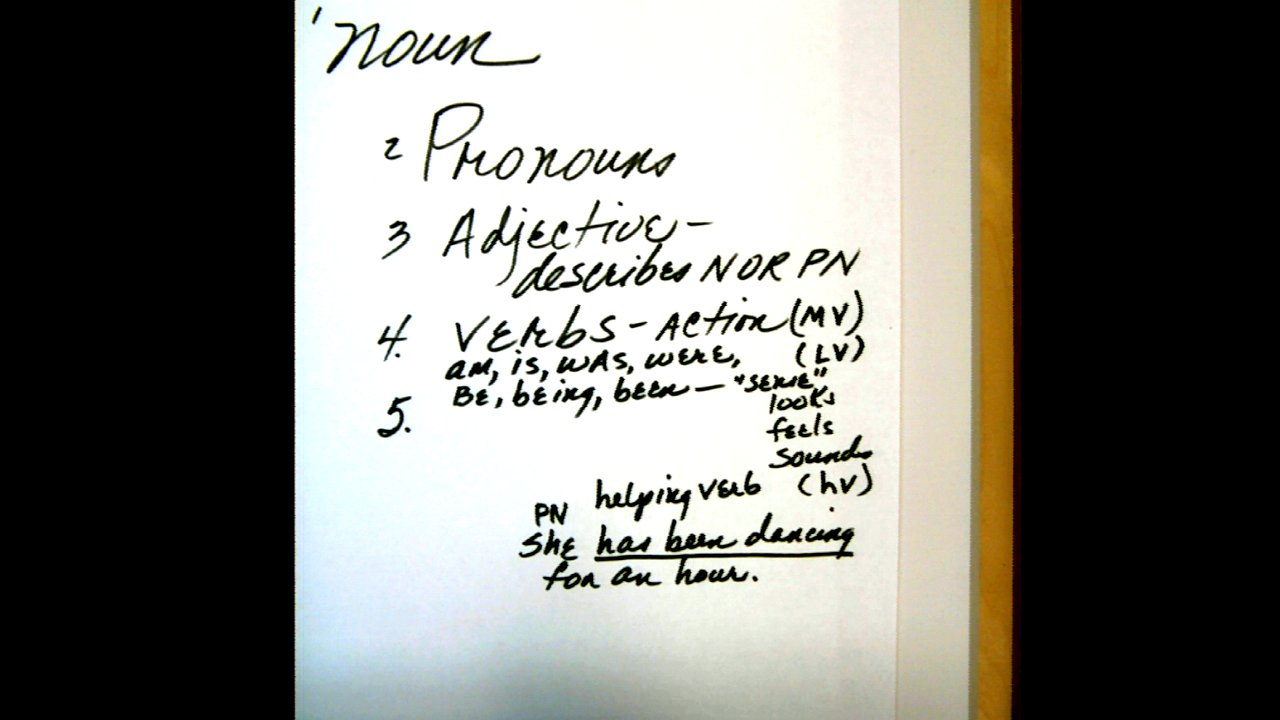 1 noun
2 Pronouns
3 Adjective -
describes N OR PN
4. VERbS - ACTION (MV)
am, is, WAS, WERE, (LV)
BE, bEing, bEEn - "SENSE"
looks
fEEls
Sounds
5.
helping VERb (hV)
PN
ShE has been dancing
for an hour.